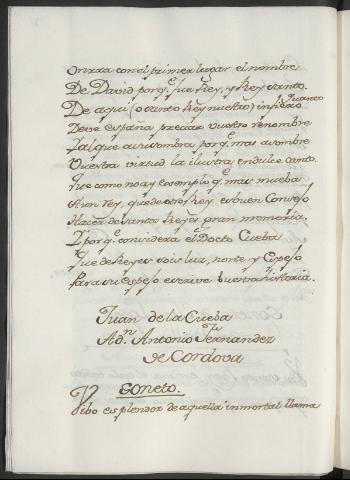 Onrraa con el primer lugar el nombre
De David porq.e fue Rey, y Rey santo.
De aqui (o santo Rey nuestro) infiero
quanto
Deve españa preciar vuestro renombre
Y al que auri nombra porq.e mas asombre
Vuestra virtud la ilustra en dulce canto.
Que como no ay exemplo q.e mas mueba
A un Rey, que de otro Rey es buen Consejo
Hacer de santos Reyes gran memoria.
Y porq.e considera el Docto Cueba
Que de Reyes sois luz, norte y Espejo
Para su espejo escrive buestra historia.
Juan de la Cueba
Ad.n Antonio Fernandez
de Cordova
Soneto.
Vibo esplendor de aquella inmortal llama